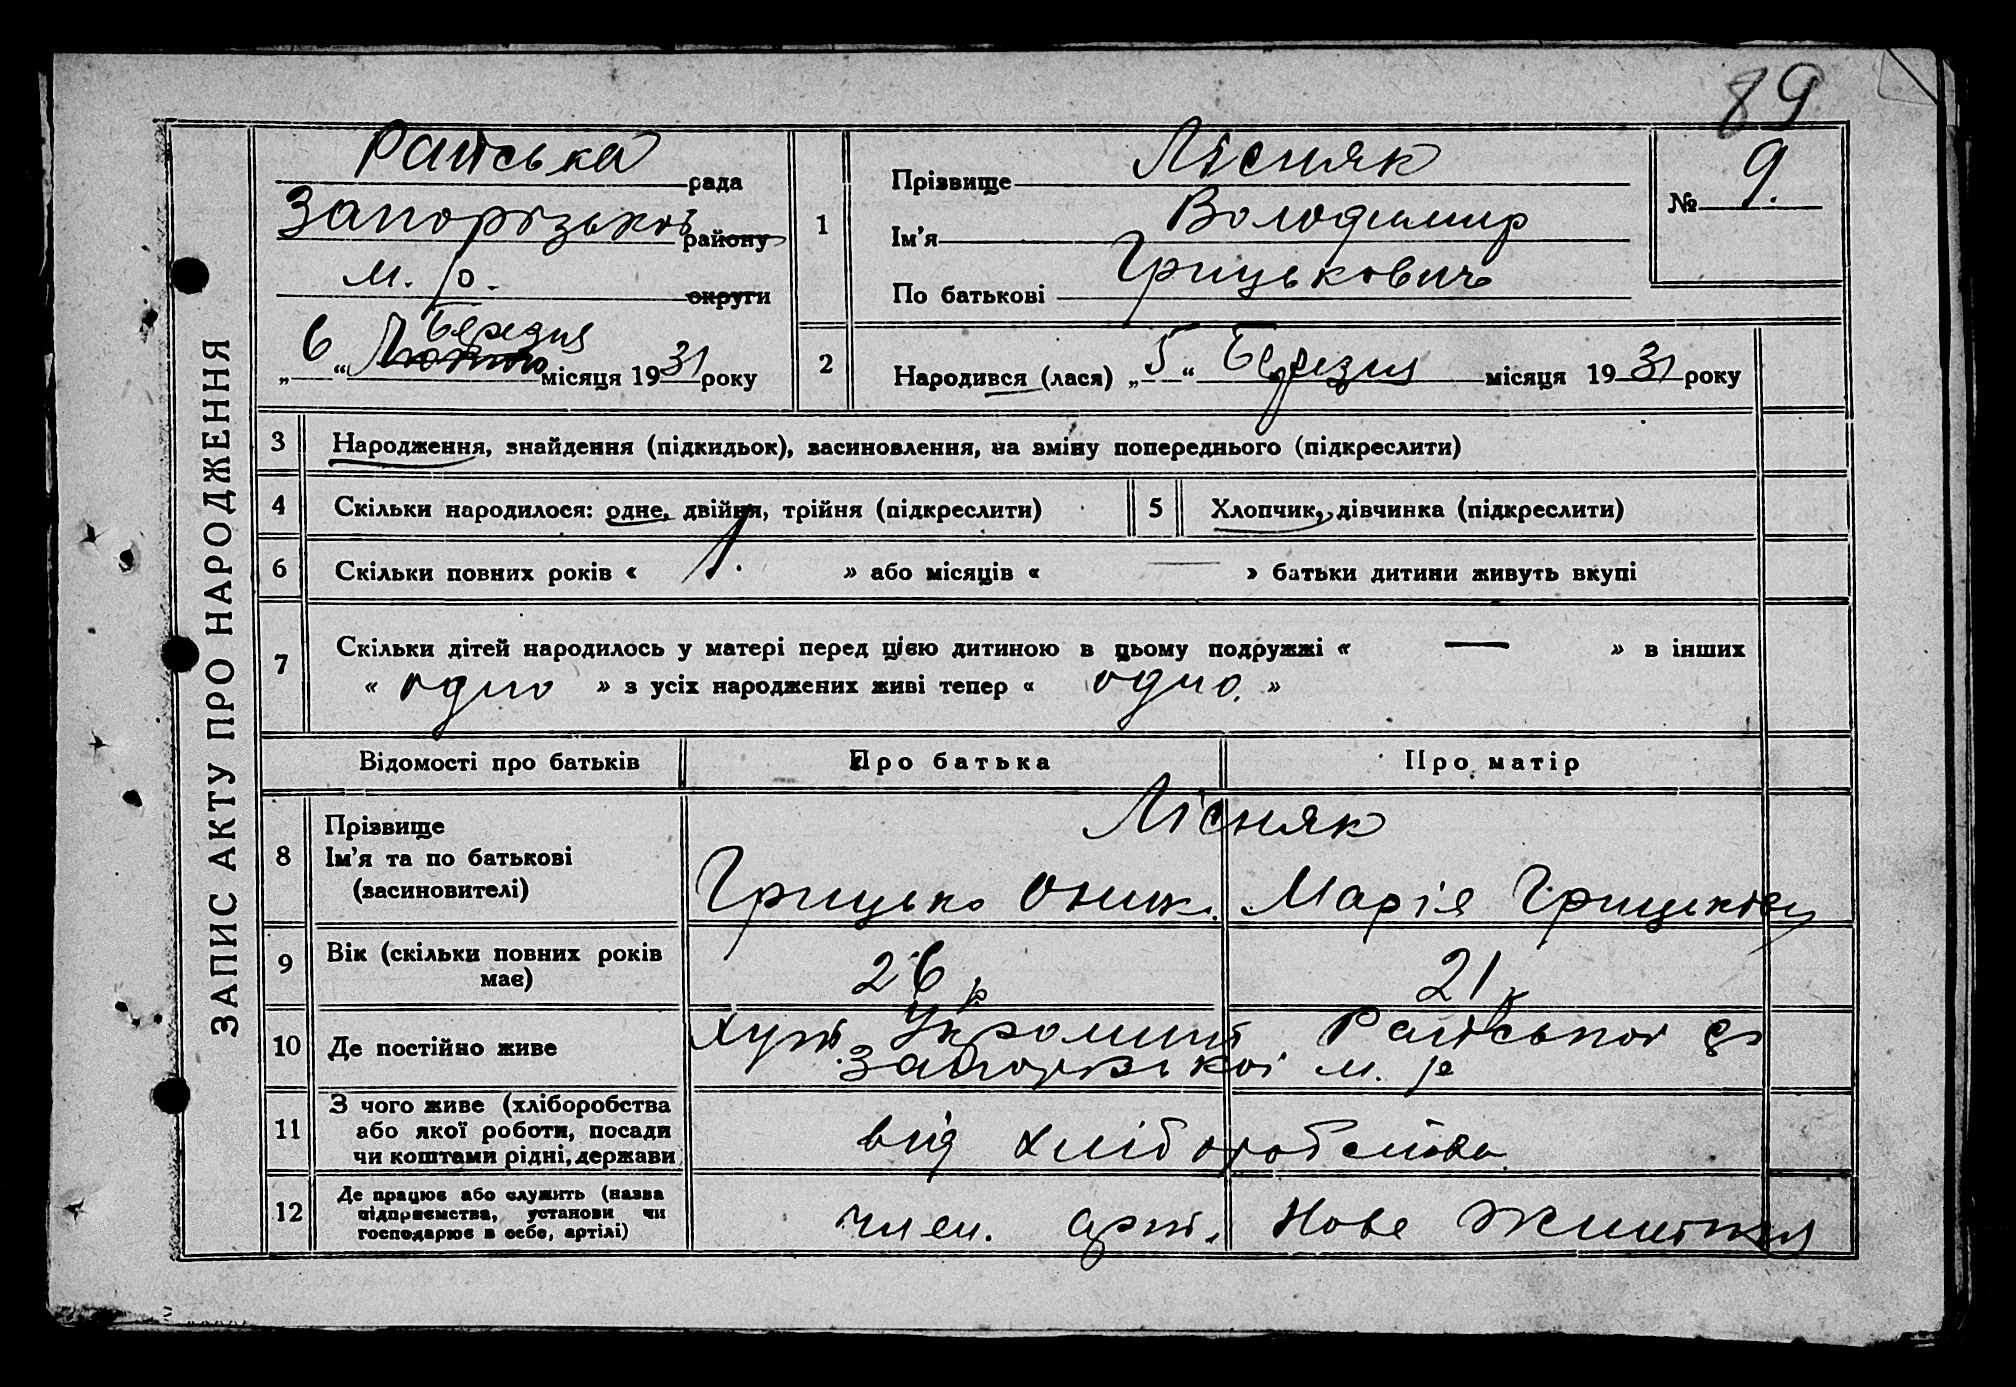 89
ЗАПИС АКТУ ПРО НАРОДЖЕННЯ
Райська рада
Запорізької району
м. р. округи
„6“ Лютого Березня місяця 1931 року
1 Прізвище Лісняк
Ім’я Володимир
По батькові Грицькович
№ 9.
2 Народився (лася) „5“ Березня місяця 1931 року
3 Народження, знайдення (підкидьок), засиновлення, на вміну попереднього (підкреслити)
4 Скільки народилося: одне, двійня, трійня (підкреслити)
5 Хлопчик, дівчинка (підкреслити)
6 Скільки повних років « 1. » або місяців « — » батьки дитини живуть вкупі
7 Скільки дітей народилось у матері перед цією дитиною в цьому подружжі « — » в інших
« одно » з усіх народжених живі тепер « одно. »
Відомості про батьків Про батька Про матір
8 Прізвище
Ім’я та по батькові
(засиновителі)
Лісняк
Грицько Оник. Марія Грицьків
9 Вік (скільки повних років
має)
26 р 21 р
10 Де постійно живе
Хут. Райської
Запорізької м. р
11 З чого живе (хліборобства
або якої роботи, посади
чи коштами рідні, держави
від хліборобства
12 Де працює або служить (назва
підприємства, установи чи
господарює в себе, артілі)
член. арт. Нове Життя